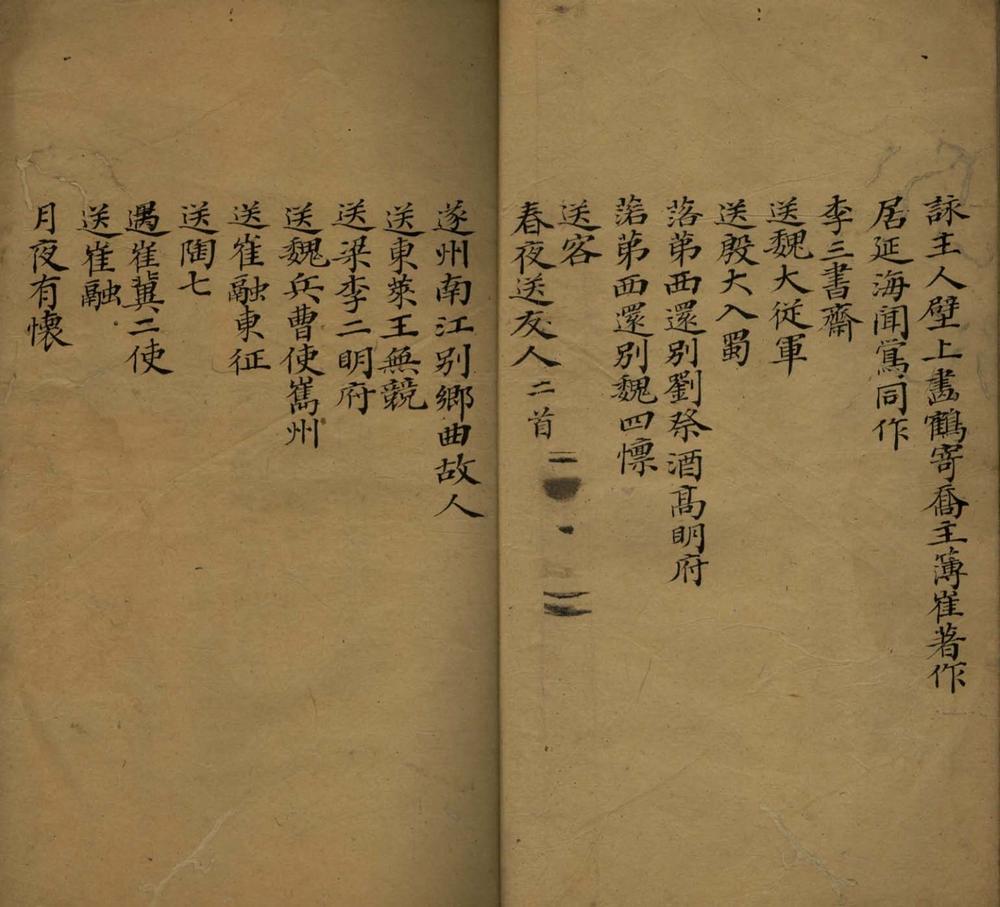 詠主人壁上畫鶴寄喬主簿崔著作
居延海聞鶯同作
李三書齋
送魏大從軍
送殷大入蜀
落第西還別劉祭酒高明府
落第西還別魏四懔
送客
春夜送友人二首
遂州南江別鄉曲故人
送東萊王無競
送梁李二明府
送魏兵曹使嶲州
送崔融東征
送陶七
遇崔冀二使
送崔融
月夜有懷